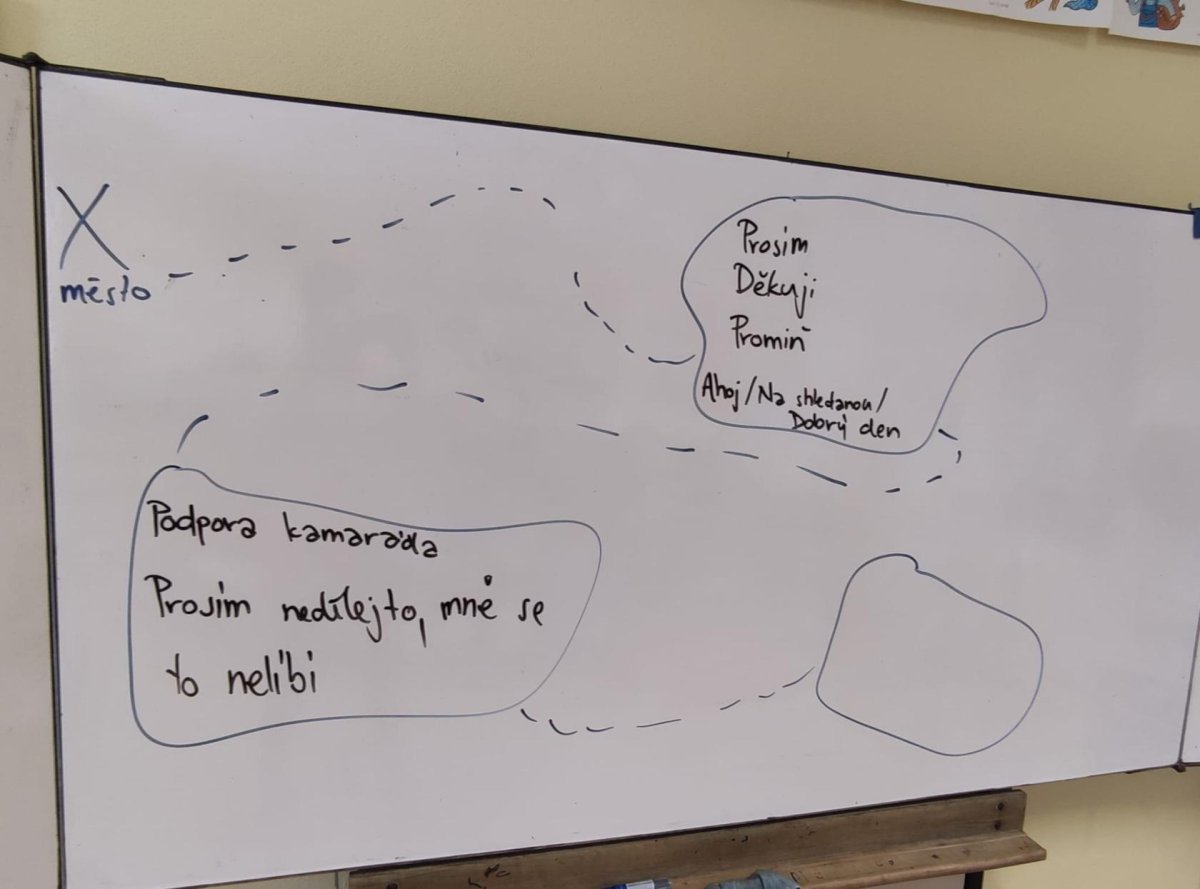 X
město
Prosím
Děkuji
Promiň
Ahoj/Na shledanou/
Dobrý den
Podpora kamaráda
Prosím nedělejto, mně se
to nelíbí